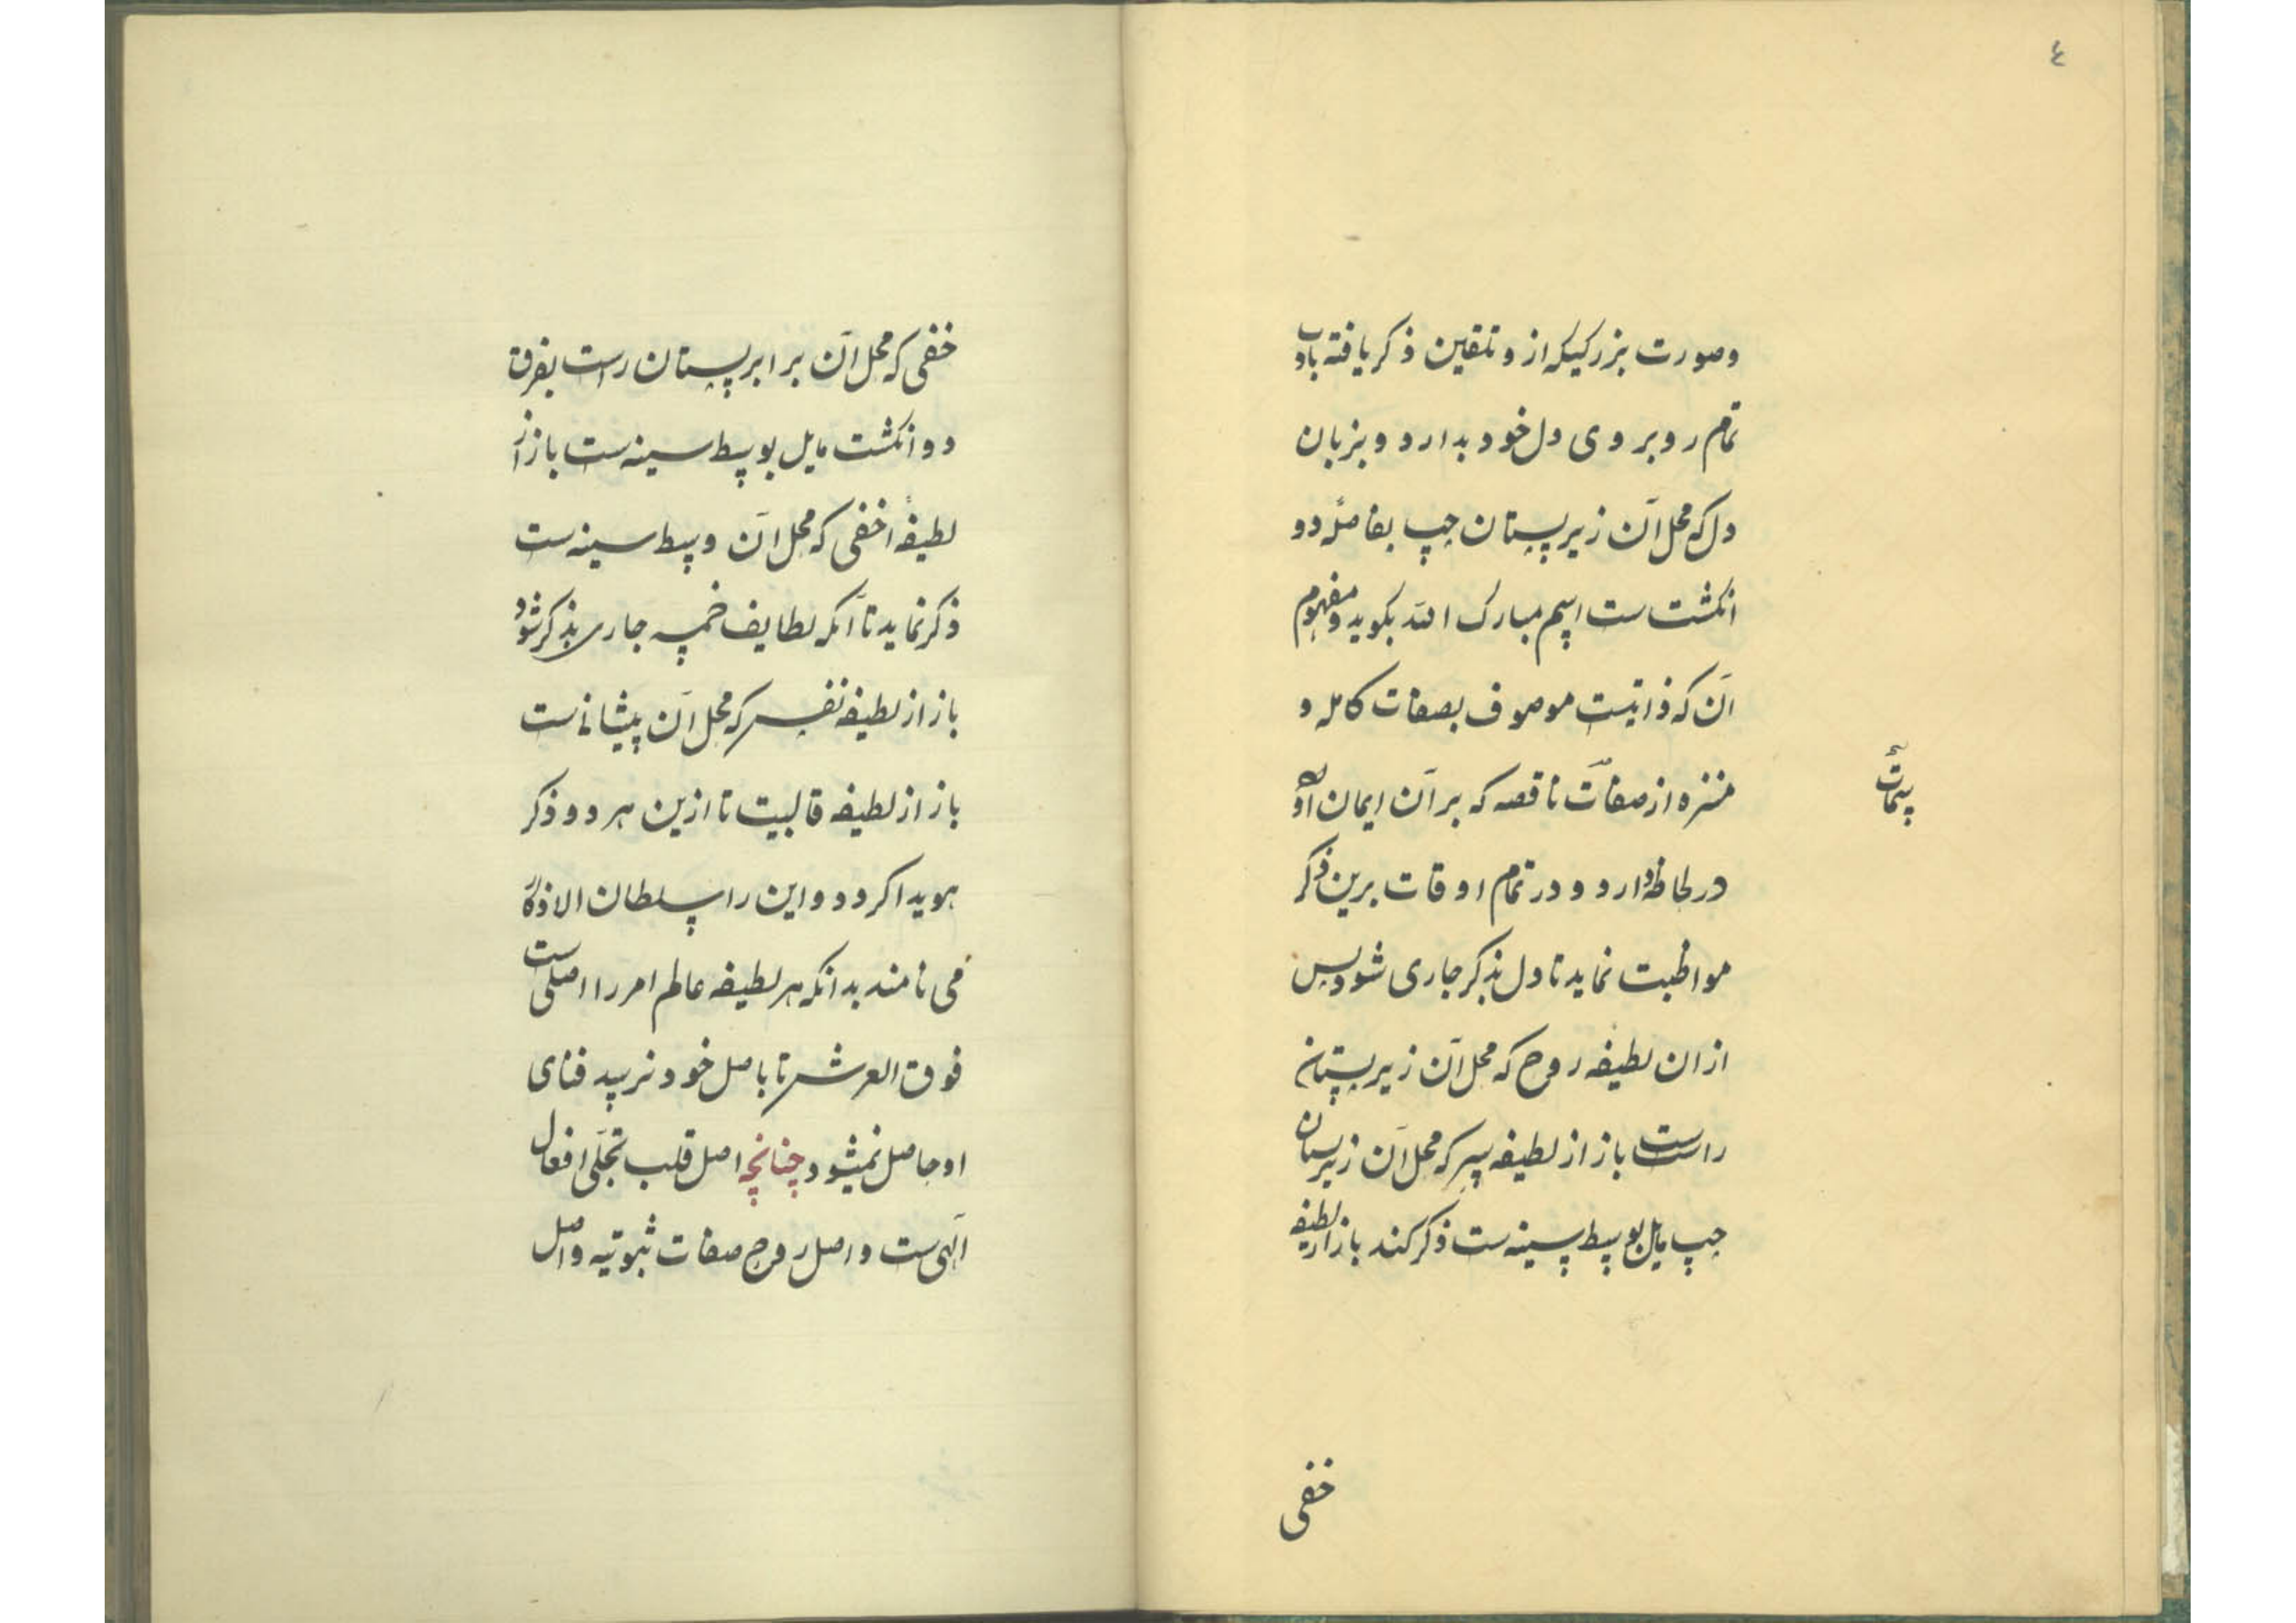 ٤
وصورت بزرکیکه از و تلقین ذکر یافته بادب
تمام روبروی دل خود بدارد و بزبان
دل که محل آن زیر پستان چپ بفاصلهٔ دو
انکشت ست اسم مبارک الله بکوید و مفهوم
آن که ذاتیست موصوف بصفات کامله و
منزه از صفات ناقصه که بر آن ایمان آورده
در لحاظ دارد و در تمام اوقات برین ذکر
مواظبت نماید تا دل بذکر جاری شود پس
ازان لطیفه روح که محل آن زیر پستان
راست ست باز از لطیفه سر که محل آن زیر پستان
چپ مایل بوسط سینه ست ذکر کند باز از لطیفه
خفی
خفی که محل آن برابر پستان راست بفرق
دو انکشت مایل بوسط سینه ست باز از
لطیفهٔ اخفی که محل آن وسط سینه ست
ذکر نماید تا آنکه لطایف خمسه جاری بذکر شود
باز از لطیفه نفس که محل آن پیشانی ست
باز از لطیفه قالبیت تا ازین هر دو ذکر
هویدا کردد و این را سلطان الاذکار
می نامند بدانکه هر لطیفه عالم امر را اصلی ست
فوق العرش تا باصل خود نرسد فنای
او حاصل نمیشود چنانچه اصل قلب تجلی افعال
الهی ست و اصل روح صفات ثبوتیه و اصل